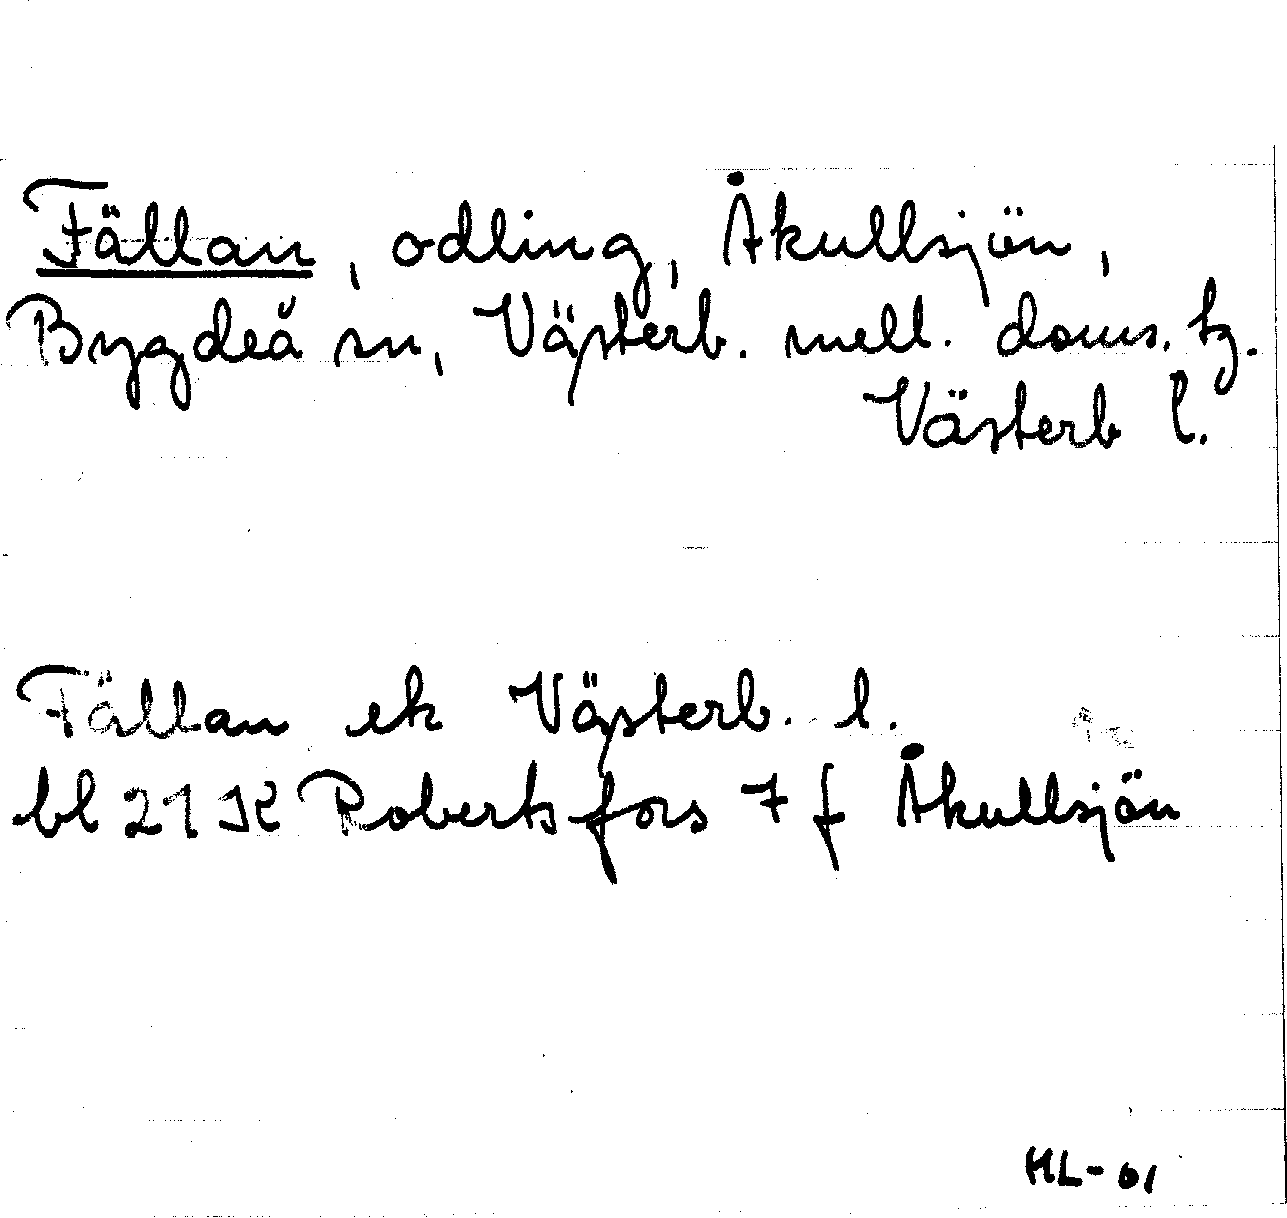 Fällan, odling, Åkullsjön,
Bygdeå sn, Västerb. mell. doms. tg.
Västerb l.
Fällan ek Västerb. l.
bl 21 K Robertsfors 7 f Åkullsjön
HL-61